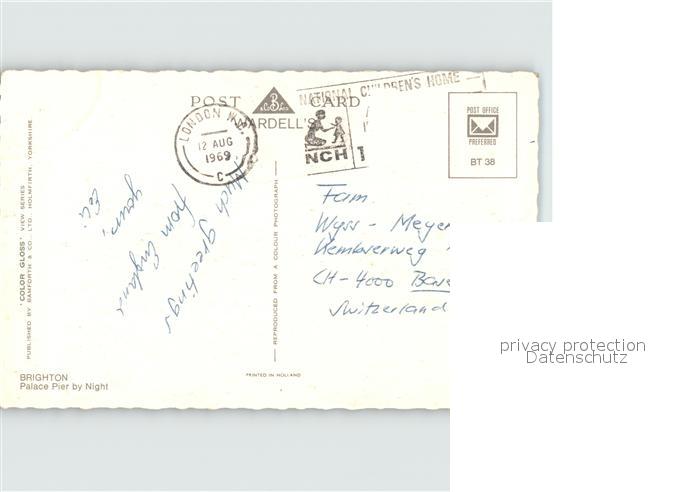 POST CARD
WARDELL'S
LONDON
12 AUG
1969
C
NATIONAL CHILDREN'S HOME
NCH
POST OFFICE
PREFERRED
BT 38
Much greetings
from England
yours,
Fam.
Wyss - Meyer
CH-4000
Switzerland
REPRODUCED FROM A COLOUR PHOTOGRAPH
'COLOR GLOSS' VIEW SERIES
PUBLISHED BY BAMFORTH & CO. LTD. HOLMFIRTH, YORKSHIRE
BRIGHTON
Palace Pier by Night
PRINTED IN HOLLAND
privacy protection
Datenschutz